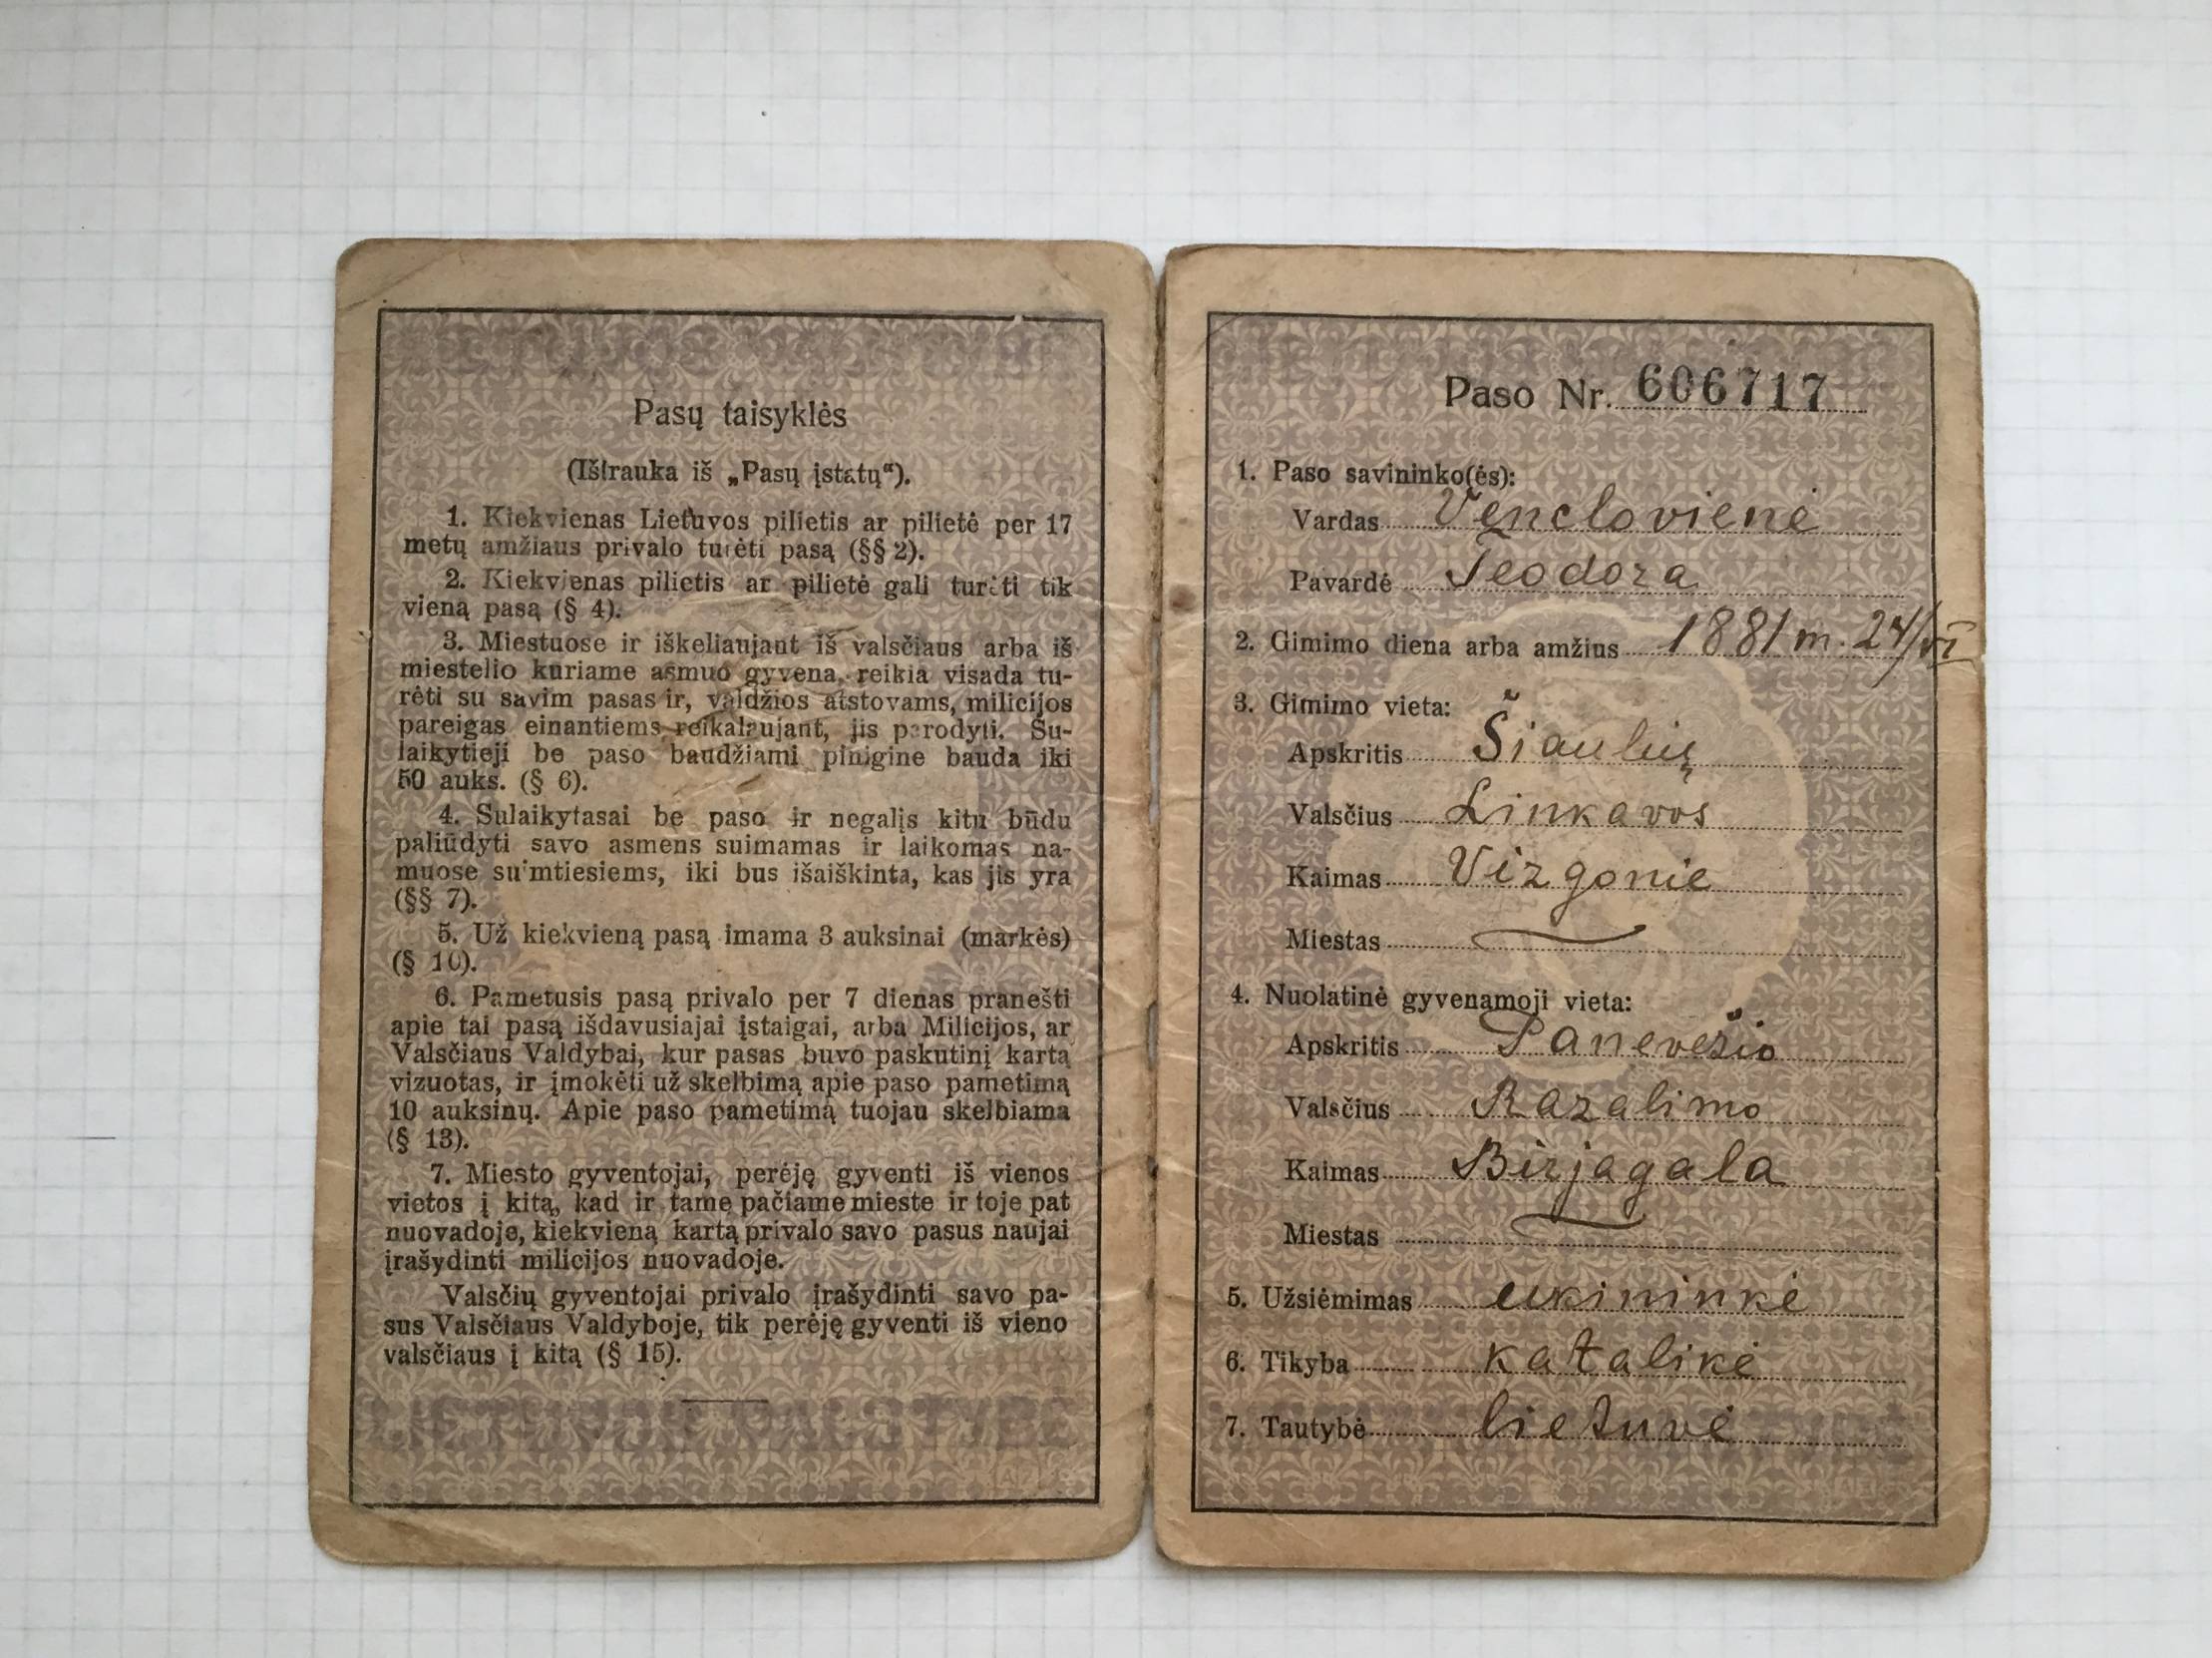 Pasų taisyklės
(Ištrauka iš „Pasų įstatų“).
1. Kiekvienas Lietuvos pilietis ar pilietė per 17
metų amžiaus privalo turėti pasą (§§ 2).
2. Kiekvienas pilietis ar pilietė gali turėti tik
vieną pasą (§ 4).
3. Miestuose ir iškeliaujant iš valsčiaus arba iš
miestelio kuriame asmuo gyvena, reikia visada tu-
rėti su savim pasas ir, valdžios atstovams, milicijos
pareigas einantiems reikalaujant, jis parodyti. Su-
laikytieji be paso baudžiami pinigine bauda iki
50 auks. (§ 6).
4. Sulaikytasai be paso ir negalįs kitu būdu
paliūdyti savo asmens suimamas ir laikomas na-
muose suimtiesiems, iki bus išaiškinta, kas jis yra
(§§ 7).
5. Už kiekvieną pasą imama 3 auksinai (markės)
(§ 10).
6. Pametusis pasą privalo per 7 dienas pranešti
apie tai pasą išdavusiajai įstaigai, arba Milicijos, ar
Valsčiaus Valdybai, kur pasas buvo paskutinį kartą
vizuotas, ir įmokėti už skelbimą apie paso pametimą
10 auksinų. Apie paso pametimą tuojau skelbiama
(§ 13).
7. Miesto gyventojai, perėję gyventi iš vienos
vietos į kitą, kad ir tame pačiame mieste ir toje pat
nuovadoje, kiekvieną kartą privalo savo pasus naujai
įrašydinti milicijos nuovadoje.
Valsčių gyventojai privalo įrašydinti savo pa-
sus Valsčiaus Valdyboje, tik perėję gyventi iš vieno
valsčiaus į kitą (§ 15).
LIETUVOS VALSTYBĖ
Paso Nr. 606717
1. Paso savininko(ės):
Vardas Venclovienė
Pavardė Teodora
2. Gimimo diena arba amžius 1881 m. 24/VI
3. Gimimo vieta:
Apskritis Šiaulių
Valsčius Linkavos
Kaimas Vizgonie
Miestas
4. Nuolatinė gyvenamoji vieta:
Apskritis Panevežio
Valsčius Razalimo
Kaimas Birjagala
Miestas
5. Užsiėmimas ukininkė
6. Tikyba katalikė
7. Tautybė lietuvė